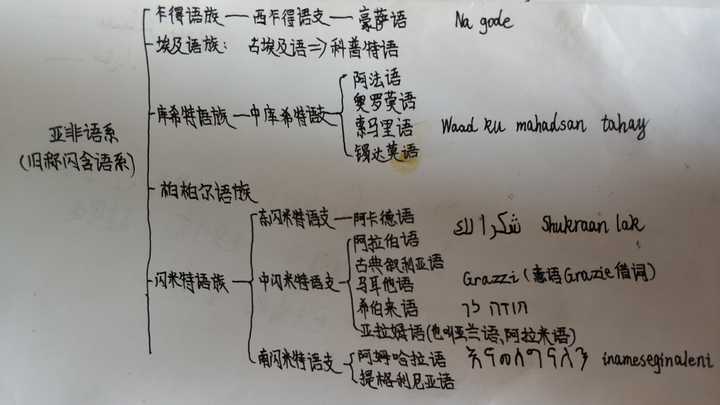 卡得语族 — 西卡得语支 — 豪萨语 Na gode
埃及语族: 古埃及语 => 科普特语
阿法语
奥罗莫语
库希特语族 — 中库希特语支
索马里语 Waad ku mahadsan tahay
锡达莫语
亚非语系
(旧称闪含语系)
柏柏尔语族
东闪米特语支 — 阿卡德语
阿拉伯语 شكرا لك Shukraan lak
古典叙利亚语
闪米特语族 — 中闪米特语支
马耳他语 Grazzi (意语Grazie借词)
希伯来语 תודה לך
亚拉姆语(也叫亚兰语、阿拉米语)
南闪米特语支
阿姆哈拉语 እናመሰግናለን inameseginaleni
提格利尼亚语